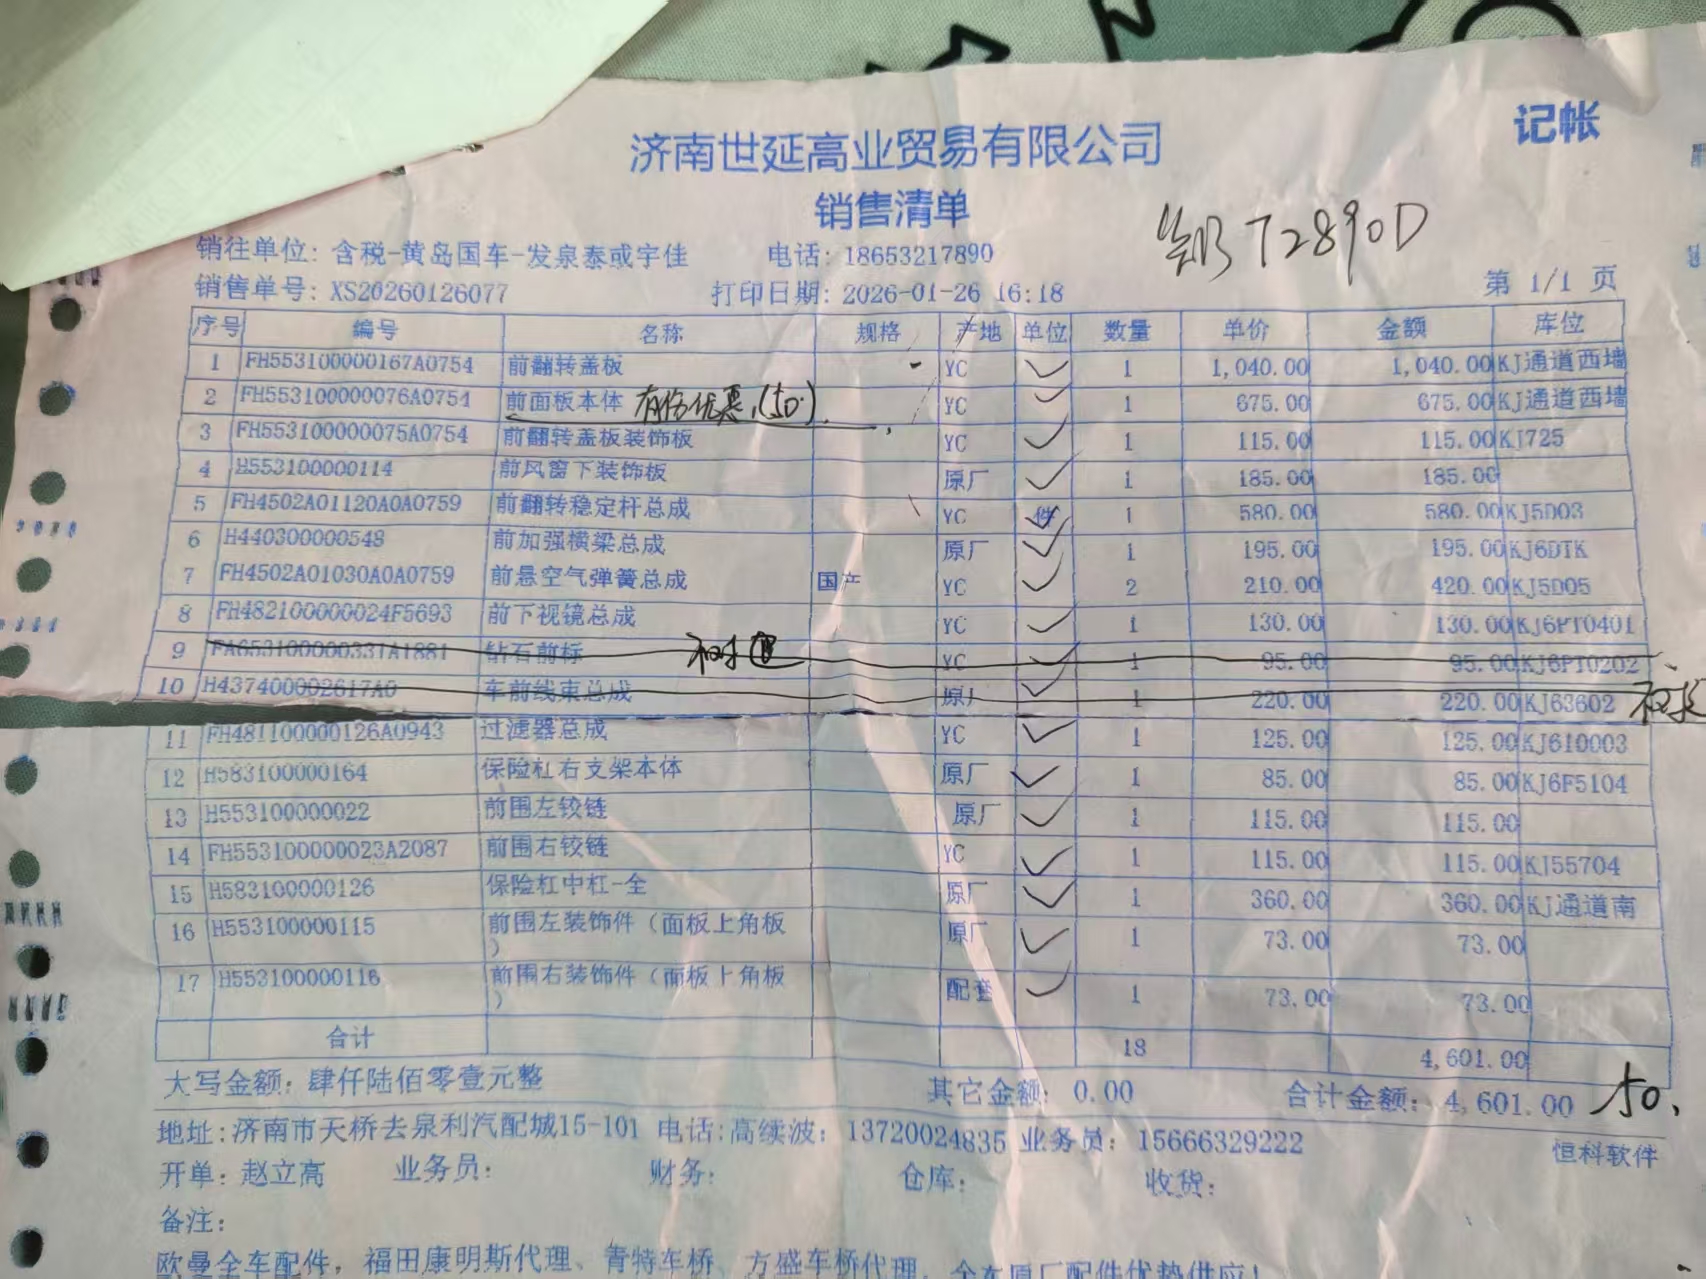 记帐
济南世延高业贸易有限公司
销售清单
T2890D
销往单位: 含税-黄岛国车-发泉泰或宇佳 电话: 18653217890
销售单号: XS20260126077 打印日期: 2026-01-26 16:18 第 1/1 页
序号 编号 名称 规格 产地 单位 数量 单价 金额 库位
1 FH553100000167A0754 前翻转盖板 YC 1 1,040.00 1,040.00 KJ通道西墙
2 FH553100000076A0754 前面板本体 有伤优惠(50.) YC 1 675.00 675.00 KJ通道西墙
3 FH553100000075A0754 前翻转盖板装饰板 YC 1 115.00 115.00 KJ725
4 H553100000114 前风窗下装饰板 原厂 1 185.00 185.00
5 FH4502A01120A0A0759 前翻转稳定杆总成 YC 件 1 580.00 580.00 KJ5D03
6 H440300000548 前加强横梁总成 原厂 1 195.00 195.00 KJ6DTK
7 FH4502A01030A0A0759 前悬空气弹簧总成 国产 YC 2 210.00 420.00 KJ5D05
8 FH482100000024F5693 前下视镜总成 YC 1 130.00 130.00 KJ6PT0401
9 FA653100000331A1881 钻石前标 YC 1 95.00 95.00 KJ6PT0202
10 H437400002617A0 车前线束总成 原厂 1 220.00 220.00 KJ63602
11 FH481100000126A0943 过滤器总成 YC 1 125.00 125.00 KJ610003
12 H583100000164 保险杠右支架本体 原厂 1 85.00 85.00 KJ6F5104
13 H553100000022 前围左铰链 原厂 1 115.00 115.00
14 FH553100000023A2087 前围右铰链 YC 1 115.00 115.00 KJ55704
15 H583100000126 保险杠中杠-全 原厂 1 360.00 360.00 KJ通道南
16 H553100000115 前围左装饰件(面板上角板) 原厂 1 73.00 73.00
17 H553100000116 前围右装饰件(面板上角板) 配套 1 73.00 73.00
合计 18 4,601.00
大写金额: 肆仟陆佰零壹元整 其它金额: 0.00 合计金额: 4,601.00 50.
地址: 济南市天桥去泉利汽配城15-101 电话:高续波: 13720024835 业务员: 15666329222
恒科软件
开单: 赵立高 业务员: 财务: 仓库: 收货:
备注:
欧曼全车配件, 福田康明斯代理、青特车桥、方盛车桥代理、全车原厂配件优势供应!